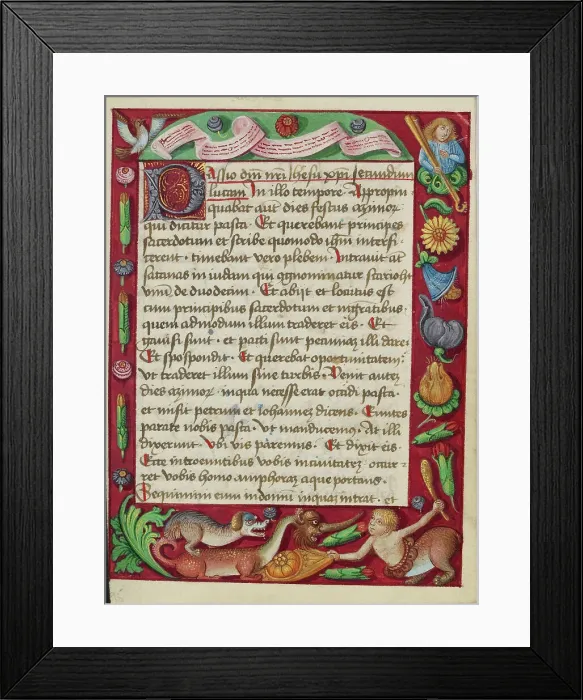 Passio dm̄ nr̄i Jhesu xp̄i secundum
lucam In illo tempore Appropin
quabat aut̄ dies festus azimor
qui dicitur pasca · Et querebant principes
sacerdotum et scribe quomodo ihm̄ interfi
cerent · timebant vero plebem · Intrauit aūt
sathanas in iudam qui cognominatur scarioth
vnū de duodecim · Et abijt et locutus est
cum principibus sacerdotum et magr̄atibus ·
quemadmodum illum traderet eis · Et
gauisi sunt · et pacti sunt pecuniaz illi dare ·
Et spospondit · Et querebat oportunitatem
vt traderet illum sine turbis · Venit autez
dies azimor · in qua necesse erat occidi pasca ·
et misit petrum et Iohannez dicens · Euntes
parate nobis pasca · vt manducemus · At illi
dixerunt · Vbi vis paremus · Et dixit eis ·
Ecce introeuntibus vobis in ciuitatez · occur
ret vobis homo amphoraz aque portans ·
Sequimini eum in domū in quaz intrat · et